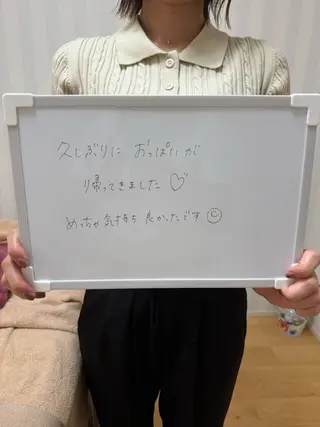 久しぶりに おっぱいが
帰ってきました♡
めっちゃ気持ち良かったです☺